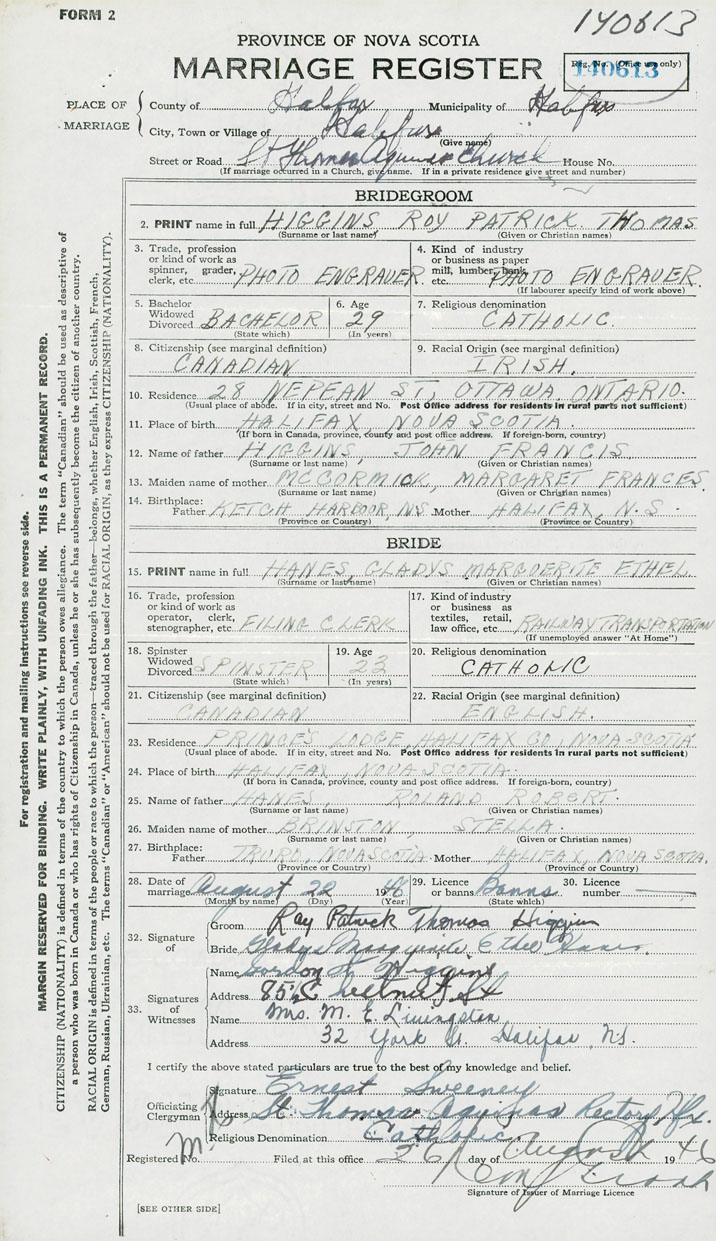 FORM 2
140613
PROVINCE OF NOVA SCOTIA
MARRIAGE REGISTER
Reg. No. (Office use only)
140613
PLACE OF MARRIAGE
County of Halifax Municipality of Halifax
City, Town or Village of Halifax
(Give name)
Street or Road St Thomas Aquinas Church House No.
(If marriage occurred in a Church, give name. If in a private residence give street and number)
BRIDEGROOM
2. PRINT name in full HIGGINS ROY PATRICK THOMAS
(Surname or last name) (Given or Christian names)
3. Trade, profession or kind of work as spinner, grader, clerk, etc. PHOTO ENGRAVER
4. Kind of industry or business as paper mill, lumber, bank, etc. PHOTO ENGRAVER.
(If labourer specify kind of work above)
5. Bachelor Widowed Divorced BACHELOR
(State which)
6. Age 29
(In years)
7. Religious denomination CATHOLIC.
8. Citizenship (see marginal definition) CANADIAN
9. Racial Origin (see marginal definition) IRISH.
10. Residence 28 NEPEAN ST, OTTAWA, ONTARIO.
(Usual place of abode. If in city, street and No. Post Office address for residents in rural parts not sufficient)
11. Place of birth HALIFAX, NOVA SCOTIA.
(If born in Canada, province, county and post office address. If foreign-born, country)
12. Name of father HIGGINS, JOHN FRANCIS
(Surname or last name) (Given or Christian names)
13. Maiden name of mother MCCORMICK, MARGARET FRANCES.
(Surname or last name) (Given or Christian names)
14. Birthplace: Father KETCH HARBOUR, N.S. Mother HALIFAX, N.S.
(Province or Country) (Province or Country)
BRIDE
15. PRINT name in full HANES, GLADYS MARGUERITE ETHEL
(Surname or last name) (Given or Christian names)
16. Trade, profession or kind of work as operator, clerk, stenographer, etc. FILING CLERK
17. Kind of industry or business as textiles, retail, law office, etc. RAILWAY TRANSPORTATION
(If unemployed answer "At Home")
18. Spinster Widowed Divorced SPINSTER
(State which)
19. Age 23
(In years)
20. Religious denomination CATHOLIC
21. Citizenship (see marginal definition) CANADIAN
22. Racial Origin (see marginal definition) ENGLISH.
23. Residence PRINCE'S LODGE, HALIFAX CO. NOVA SCOTIA
(Usual place of abode. If in city, street and No. Post Office address for residents in rural parts not sufficient)
24. Place of birth HALIFAX, NOVA SCOTIA.
(If born in Canada, province, county and post office address. If foreign-born, country)
25. Name of father HANES, ROLAND ROBERT.
(Surname or last name) (Given or Christian names)
26. Maiden name of mother BRINSTON, STELLA.
(Surname or last name) (Given or Christian names)
27. Birthplace: Father TRURO, NOVA SCOTIA Mother HALIFAX, NOVA SCOTIA.
(Province or Country) (Province or Country)
28. Date of marriage August 22 1946
(Month by name) (Day) (Year)
29. Licence or banns Banns
(State which)
30. Licence number
32. Signature of
Groom Roy Patrick Thomas Higgins
Bride Gladys Marguerite Ethel Hanes.
33. Signatures of Witnesses
Name Gordon Higgins
Address St
Name Mrs. M. E. Livingston
Address 32 York St. Halifax, N.S.
I certify the above stated particulars are true to the best of my knowledge and belief.
Officiating Clergyman
Signature Ernest Sweeney
Address St. Thomas Aquinas Rectory Hfx.
Religious Denomination Catholic
Registered No. Filed at this office 26 day of August 1946
Signature of Issuer of Marriage Licence
[SEE OTHER SIDE]
For registration and mailing instructions see reverse side.
MARGIN RESERVED FOR BINDING. WRITE PLAINLY, WITH UNFADING INK. THIS IS A PERMANENT RECORD.
CITIZENSHIP (NATIONALITY) is defined in terms of the country to which the person owes allegiance. The term "Canadian" should be used as descriptive of
a person who was born in Canada or who has rights of Citizenship in Canada, unless he or she has subsequently become the citizen of another country.
RACIAL ORIGIN is defined in terms of the people or race to which the person—traced through the father—belongs, whether English, Irish, Scottish, French,
German, Russian, Ukrainian, etc. The terms "Canadian" or "American" should not be used for RACIAL ORIGIN, as they express CITIZENSHIP (NATIONALITY).